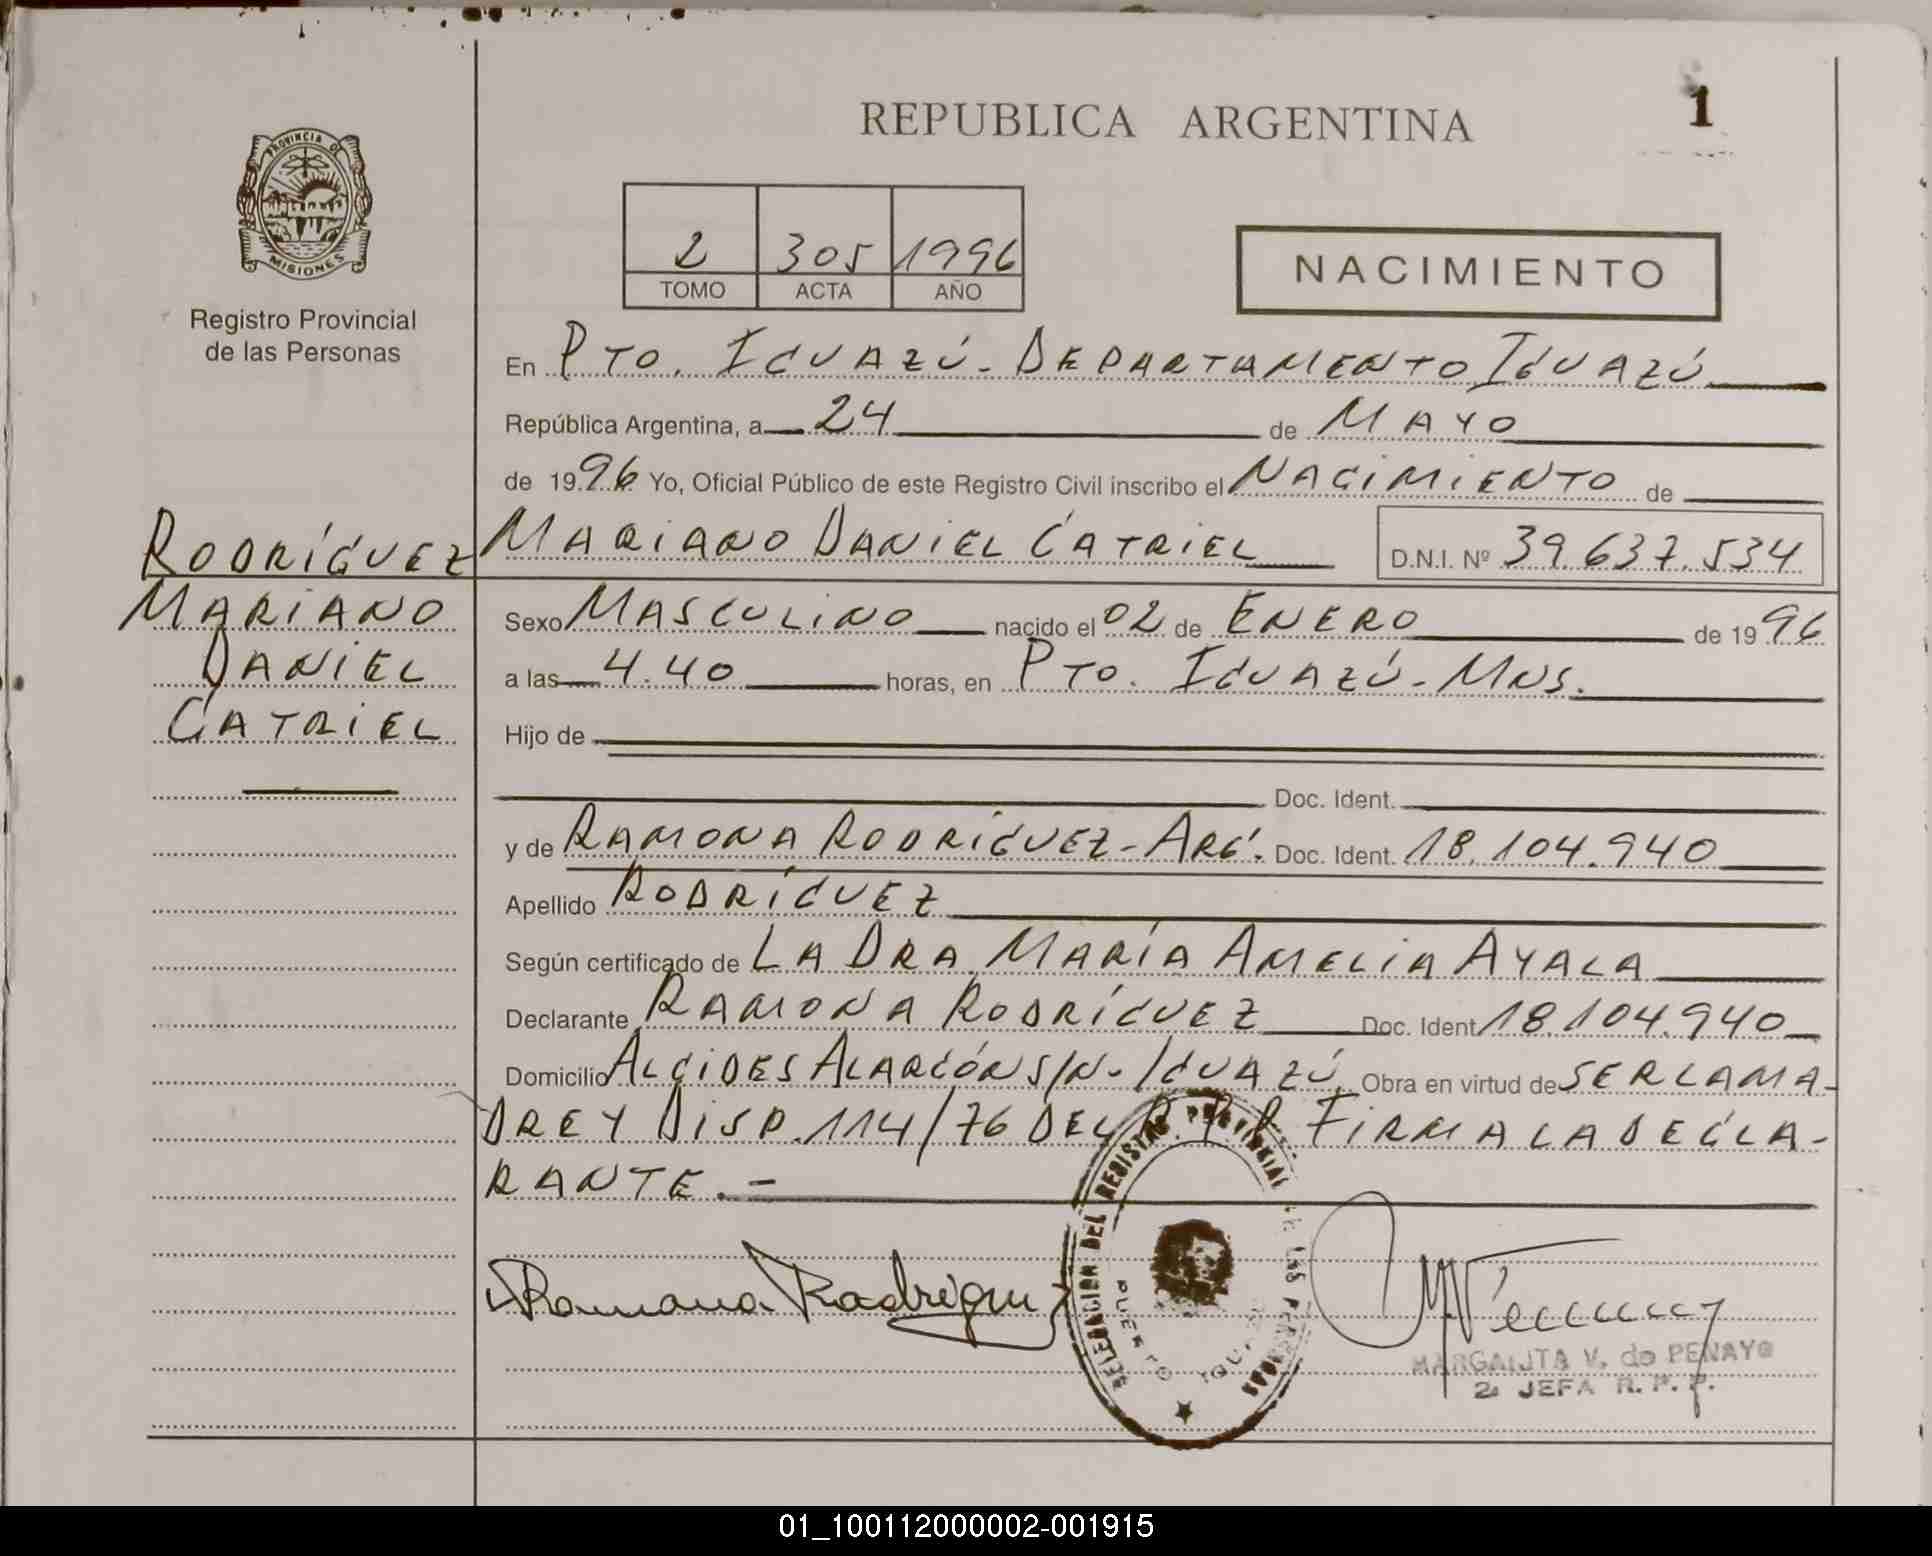 REPUBLICA ARGENTINA
1
PROVINCIA DE
MISIONES
Registro Provincial
de las Personas
2 305 1996
TOMO ACTA AÑO
NACIMIENTO
En PTO. IGUAZÚ - DEPARTAMENTO IGUAZÚ
República Argentina, a 24 de MAYO
de 1996 Yo, Oficial Público de este Registro Civil inscribo el NACIMIENTO de
RODRÍGUEZ MARIANO DANIEL CATRIEL D.N.I. Nº 39.637.534
MARIANO
DANIEL
CATRIEL
Sexo MASCULINO nacido el 02 de ENERO de 1996
a las 4.40 horas, en PTO. IGUAZÚ - MNS.
Hijo de
Doc. Ident.
y de RAMONA RODRÍGUEZ - ARG. Doc. Ident. 18.104.940
Apellido RODRÍGUEZ
Según certificado de LA DRA MARÍA AMELIA AYALA
Declarante RAMONA RODRÍGUEZ Doc. Ident 18.104.940
Domicilio ALCIDES ALARCÓN S/N - IGUAZÚ. Obra en virtud de SER LA MA-
DRE Y DISP. 114/76 DEL R. P. P. FIRMA LA DECLA-
RANTE. -
Ramona Rodriguez
DELEGACION DEL REGISTRO PROVINCIAL DE LAS PERSONAS
PUERTO IGUAZU
MARGARITA V. de PENAYO
2a JEFA R. P. P.
01_100112000002-001915